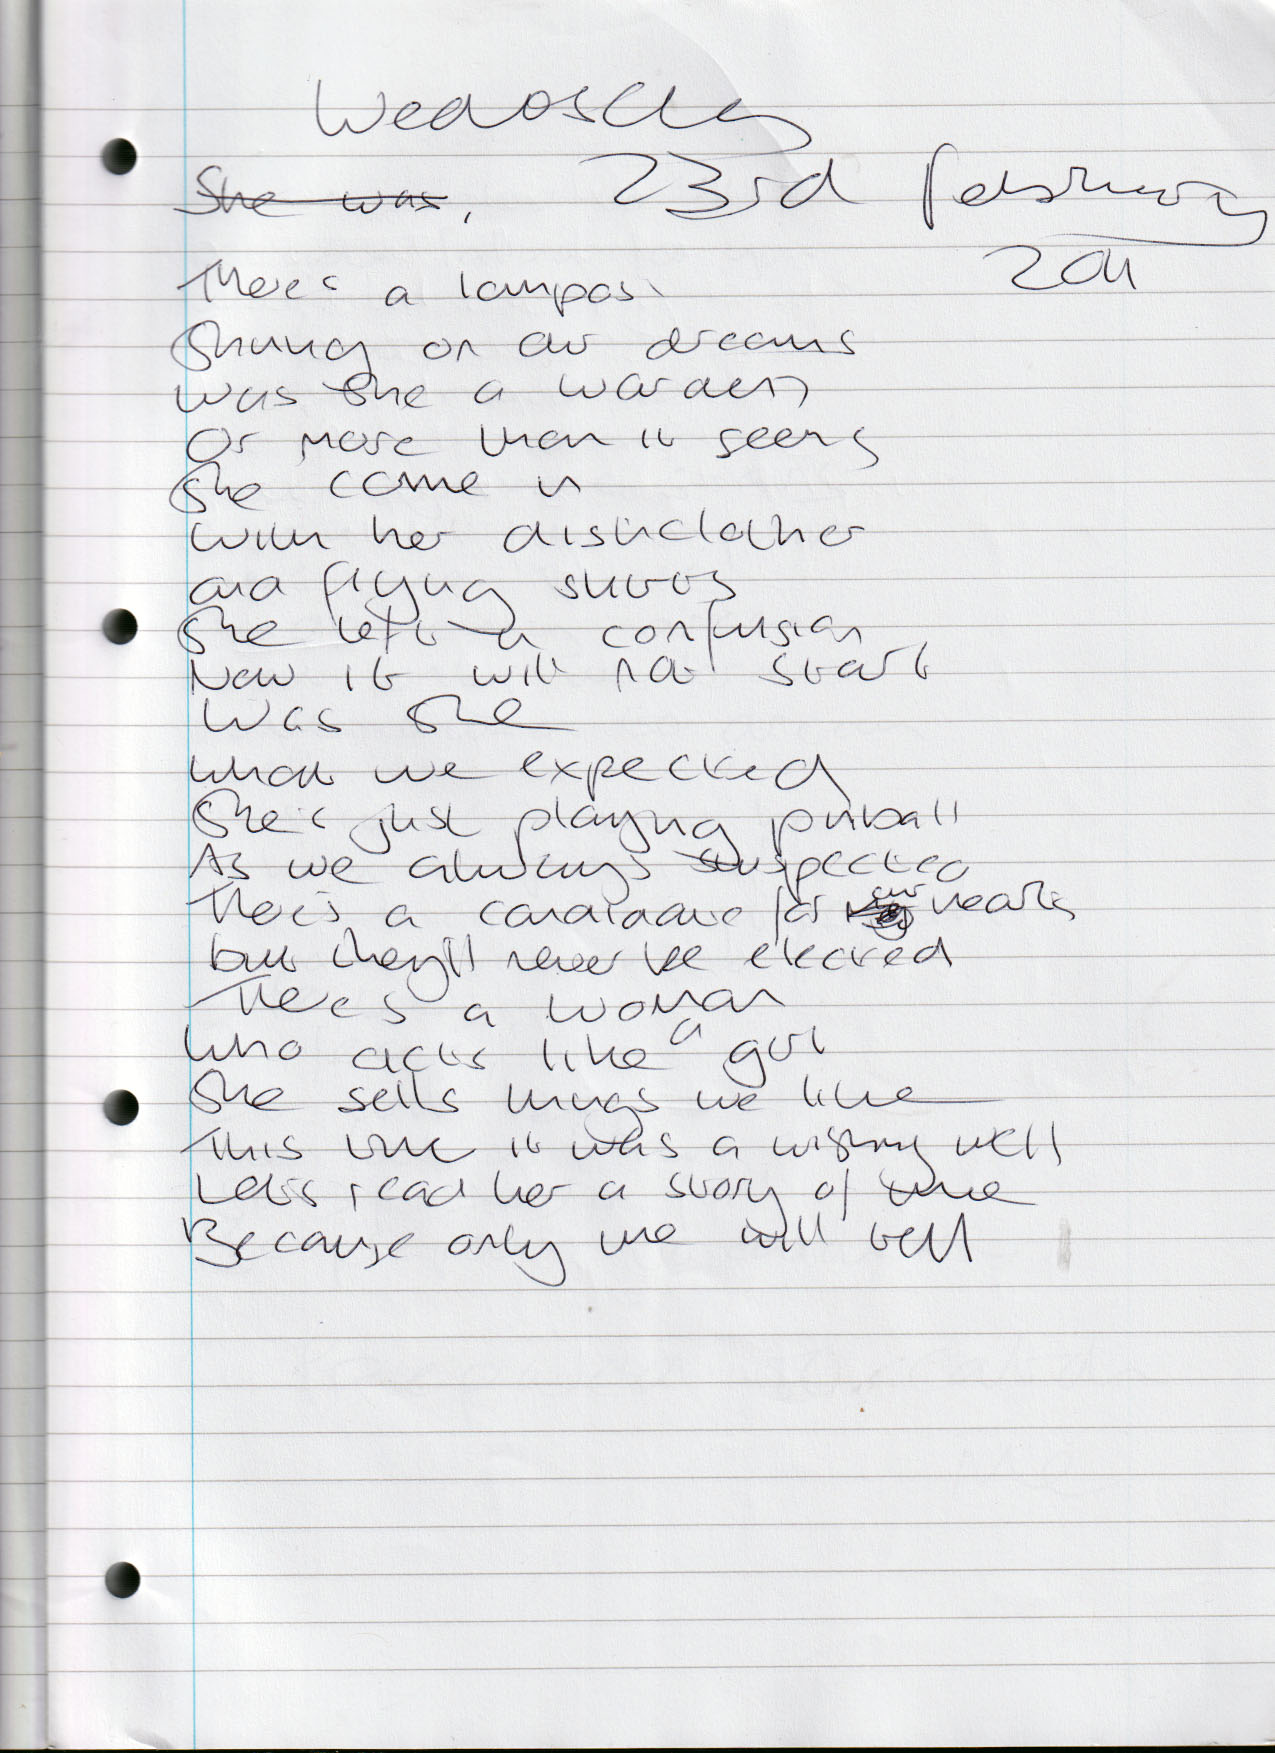 Wednesday
She was, 23rd February
2011
There's a lampost
Shining on our dreams
was she a warden
Or more than it seems
She came in
with her dishclother
and flying
She left a confusion
Now it will not start
Was she
what we expected
She's just playing pinball
As we always suspected
There's a candidate for our hearts
but they'll never be elected
There's a woman
who acts like a girl
She sells things we like
This time it was a wishing well
Let's read her a story of time
Because only we will tell